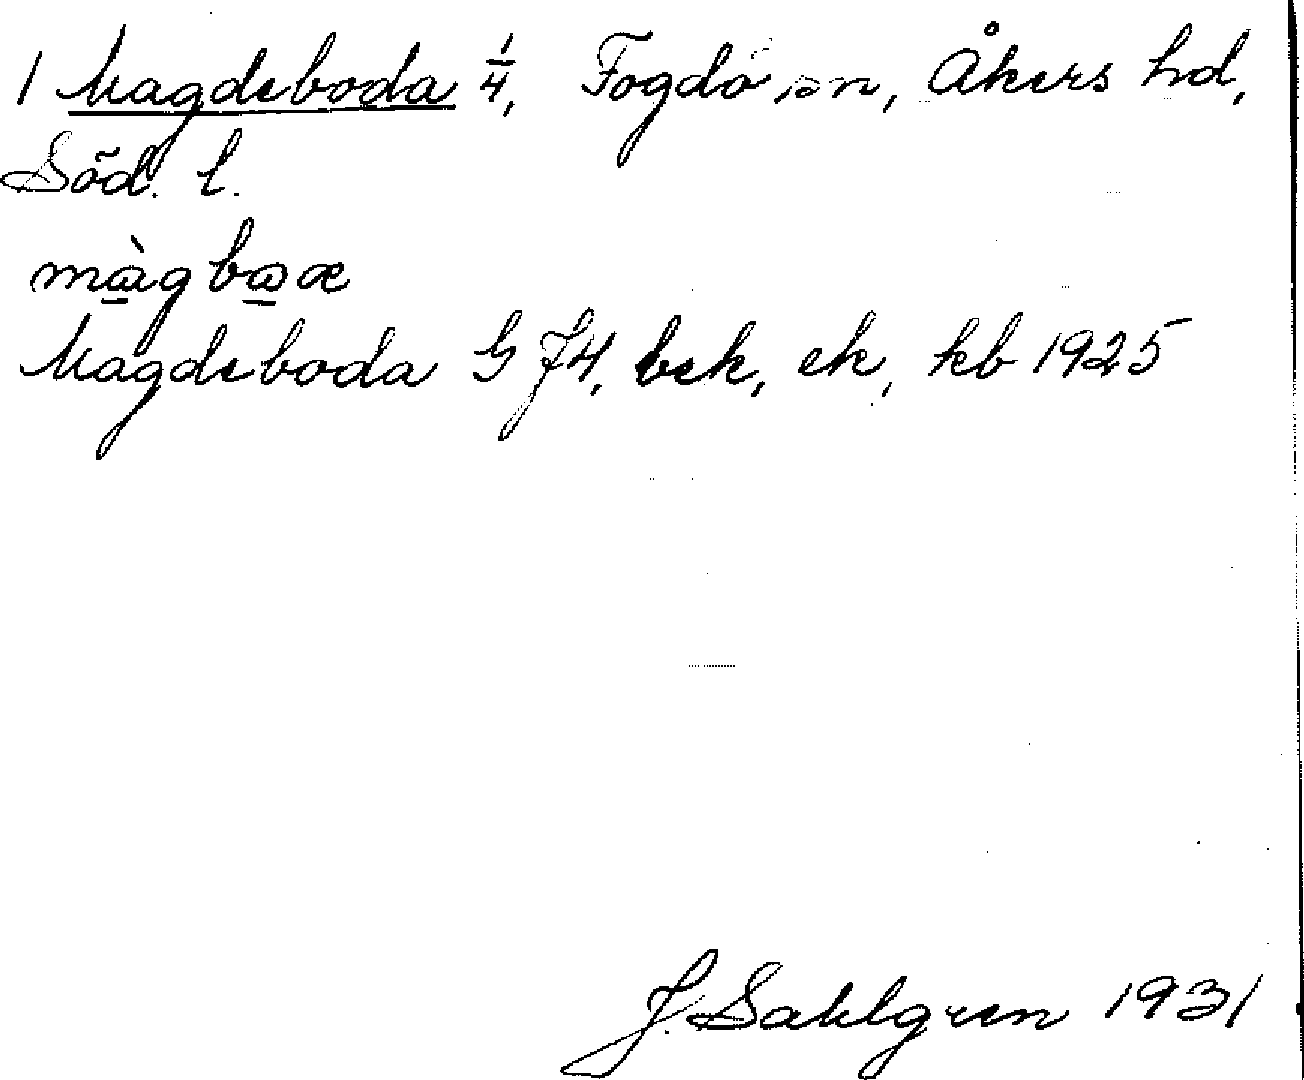 1 Magdeboda 1/4, Fogdö sn, Åkers hd,
Söd. l.
màgbωæ
Magdeboda GJ4, bek, ek, kb 1925
J. Sahlgren 1931